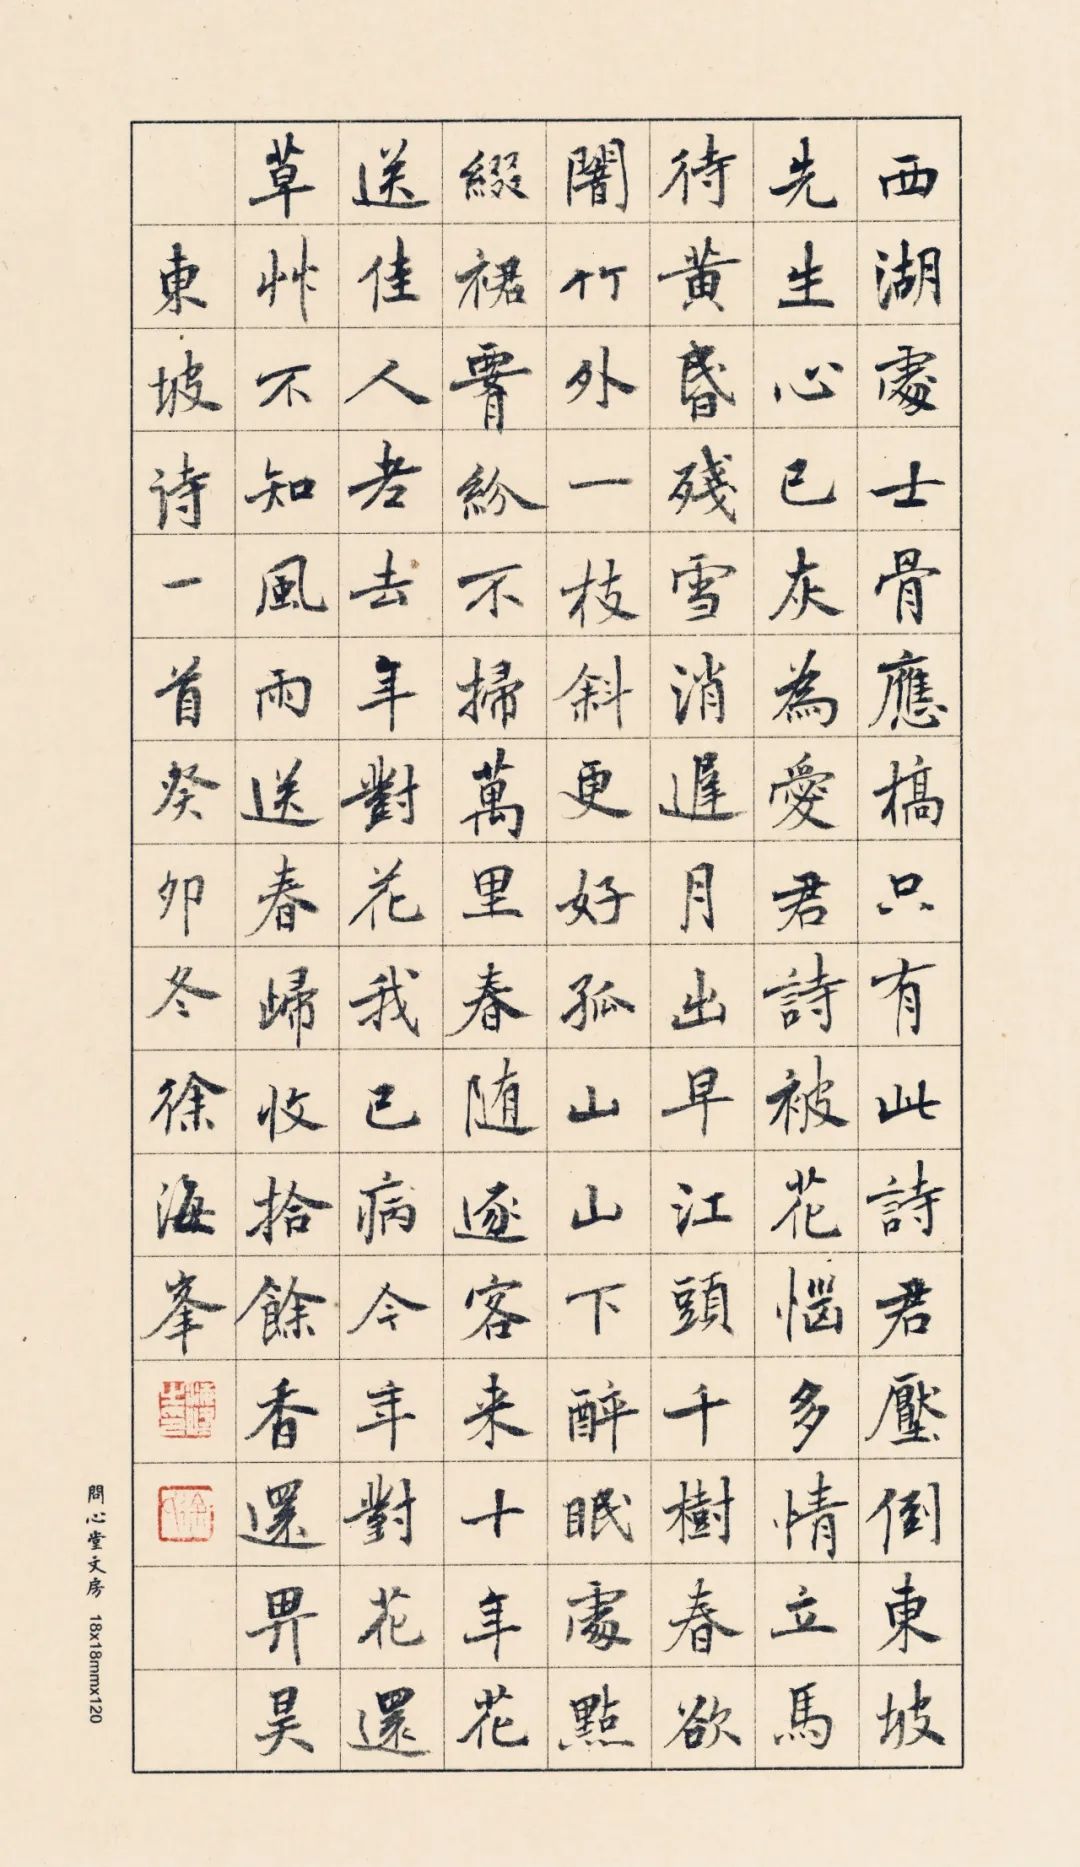 西湖處士骨應槁只有此詩君壓倒東坡
先生心已灰為愛君詩被花惱多情立馬
待黄昏殘雪消遲月出早江頭千樹春欲
闇竹外一枝斜更好孤山山下醉眠處點
綴裙腰紛不掃萬里春随逐客来十年花
送佳人老去年對花我已病今年對花還
草艸不知風雨送春歸收拾餘香還畀昊
東坡诗一首癸卯冬徐海峯
問心堂文房 18x18mmx120